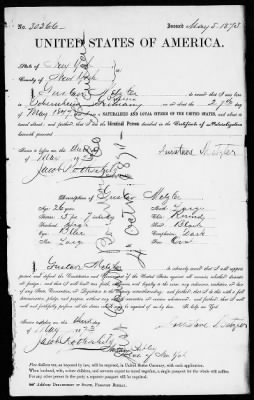 No. 30266 Issued May 5. 1873
UNITED STATES OF AMERICA.
State of New York
County of New York
I, Gustav Metzler do swear that I was born
in Germany on or about the 27th
day of May 1847
NATURALIZED AND LOYAL CITIZEN OF THE UNITED STATES, and about to
travel abroad, and further, that I am the Identical Person described in the Certificate of Naturalization
herewith presented
Sworn to before me, this third
day of May 1873
Description of Gustav Metzler
Age: 26 years
Stature: 5 feet 7 inches
Forehead: high
Eyes: Blue
Nose: Large
Mouth: Large
Chin: Round
Hair: Black
Complexion: Dark
Face: Oval
I, Gustav Metzler do solemnly swear that I will support,
protect, and defend the Constitution and Government of the United States against all enemies, whether domestic
or foreign; and that I will bear true faith, allegiance, and loyalty to the same, any ordinance, resolution, or law
of any State, Convention, or Legislature to the contrary notwithstanding; and further, that I do this with a full
determination, pledge, and purpose, without any mental reservation or evasion whatsoever; and further, that I will
well and faithfully perform all the duties which may be required of me by law: So help me God.
Sworn to before me, this third
day of May 1873
Five dollars tax, as imposed by law, will be required, in United States Currency, with each application.
When husband, wife, minor children, and servants expect to travel together, a single passport for the whole will suffice.
For any other person in the party a separate passport will be required.
Address DEPARTMENT OF STATE, PASSPORT BUREAU.